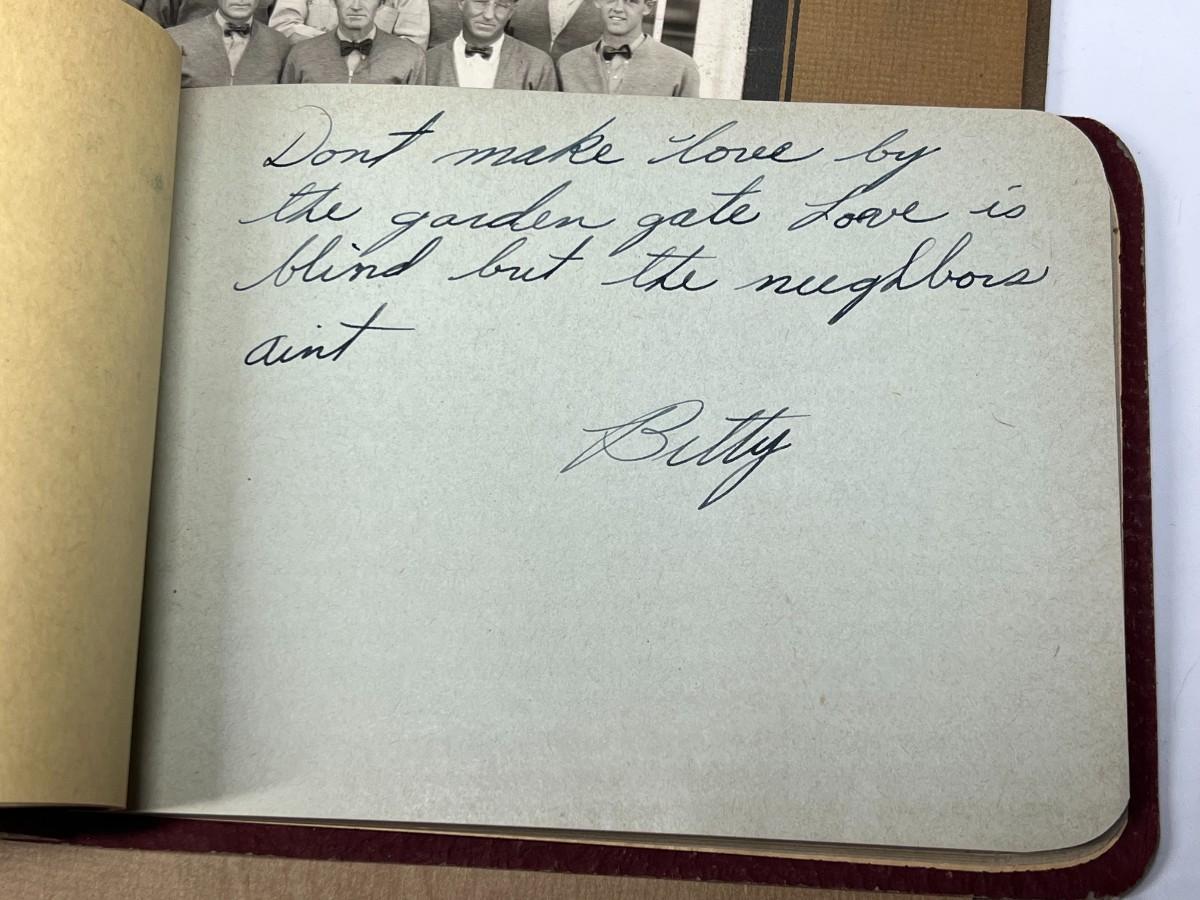 Dont make love by
the garden gate Love is
blind but the neighbors
aint
Betty